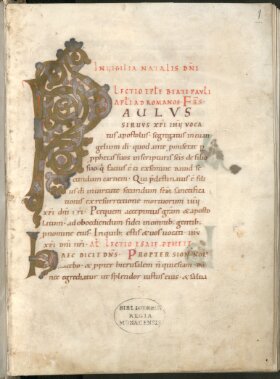 1
IN UIGILIA NATALIS DNI
LECTIO EPLE BEATI PAULI
APLI AD ROMANOS
AULUS
SERUUS XPI IHU UOCA
tus apostolus segregatus in euan
gelium di quod ante
pphetas suos in scripturis scis de filio
suo
secundum carnem Qui
di in uirtute secundum spm sanctifica
tionis ex resurrectione mortuorum ihu
xpi dni nri Per quem accepimus gram & aposto
latum ad oboediendum fidei in omnib; genti
pro nomine eius In quib; estis & uos uocati ihu
xpi dni nri LECTIO ESAIE PPHETE
HEC DICIT DNS PROPTER SION NON
tacebo & ppter hierusalem
nec egrediatur ut splendor iustus eius & salua
BIBLIOTHECA
REGIA
MONACENSIS